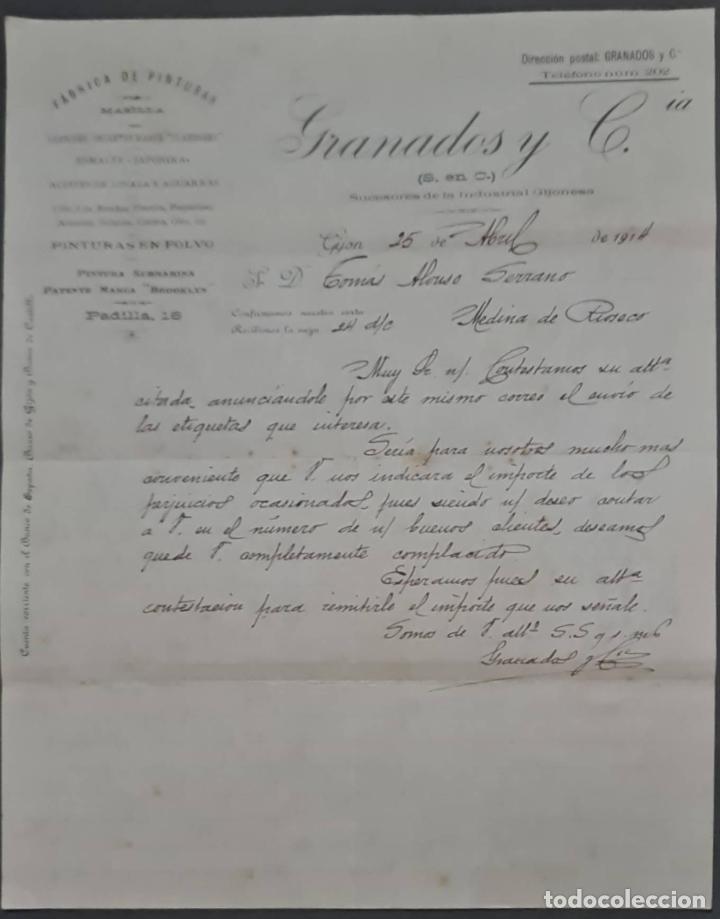 Dirección postal: GRANADOS y Cª
Teléfono núm 202
FÁBRICA DE PINTURAS
MASILLA
ESMALTE JAPONIKA
ACEITES DE LINAZA Y AGUARRÁS
PINTURAS EN POLVO
PINTURA SUBMARINA
PATENTE MARCA "BROOKLYN"
Padilla, 16
Granados y C.ia
(S. en C.)
Sucesores de la Industrial Gijonesa
Gijon 25 de Abril de 1914
S. D. Tomás Alonso Serrano
Confirmamos nuestra carta
Recibimos la suya 24 d/c
Medina de Rioseco
Muy Sr. n/. Contestamos su attª
citada, anunciándole por este mismo correo el envio de
las etiquetas que interesa.
Sería para nosotros mucho mas
conveniente que V. nos indicara el importe de los
perjuicios ocasionados, pues siendo n/ deseo contar
a V. en el número de n/ buenos clientes, deseamos
quede V. completamente complacido.
Esperamos pues su attª
contestacion para remitirle el importe que nos señale.
Somos de V. attº S.S q. s. m b
Granados y Cia
Cuenta corriente con el Banco de España, Banco de Gijón y Banco de Castilla.
todocoleccion